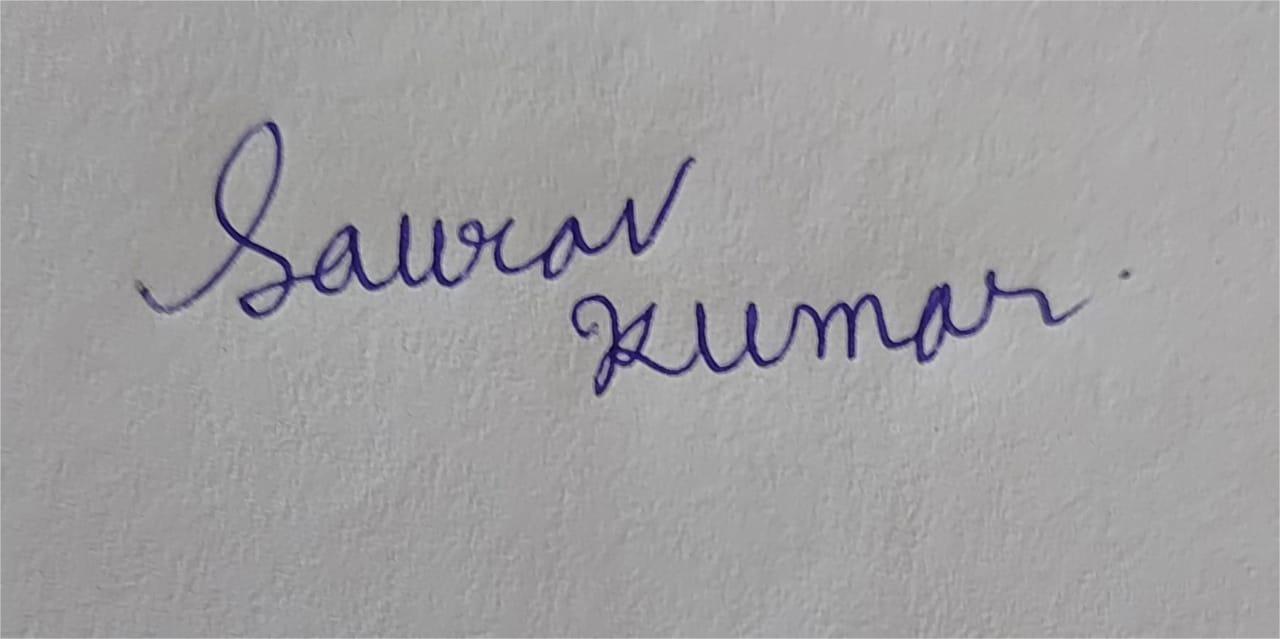 Saurav
Kumar.